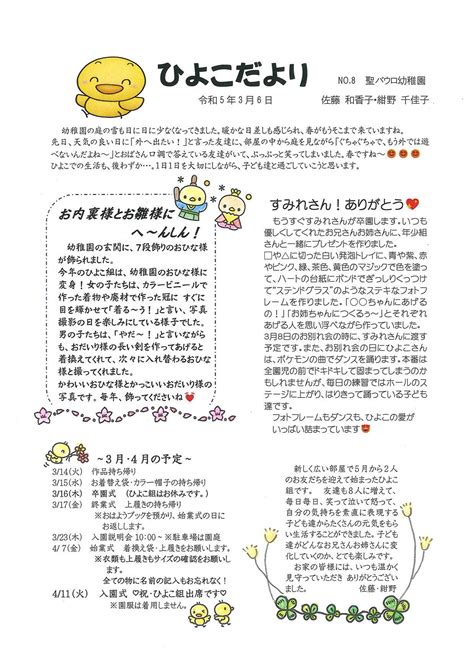 ひよこだより
NO.8 聖パウロ幼稚園
令和5年3月6日 佐藤 和香子・紺野 千佳子
幼稚園の庭の雪も日に日に少なくなってきました。暖かな日差しも感じられ、春がもうそこまで来ていますね。
先日、天気の良い日に「外へ出たい!」と言った友達に、部屋の中から庭を見ながら「ぐちゃぐちゃで、もう外では遊
べないんだよね~」とおばさん口調で答えている友達がいて、ぷっぷっと笑ってしまいました。春ですね~
ひよこでの生活も、後わずか…。1日1日を大切にしながら、子ども達と過ごしていこうと思います。
お内裏様とお雛様に
へ~んしん!
幼稚園の玄関に、7段飾りのおひな様
が飾られました。
今年のひよこ組は、幼稚園のおひな様に
変身!女の子たちは、カラービニールで
作った着物や廃材で作った冠に すぐに
目を輝かせて「着る~う!」と言い、写真
撮影の日を楽しみにしている様子でした。
男の子たちは、「やだ~!」と言いながら
も、おだいり様の長い剣を作ってあげると
着換えてくれて、次々に入れ替わるおひな
様と撮ってくれました。
かわいいおひな様とかっこいいおだいり様の
写真です。毎年、飾ってくださいね
すみれさん!ありがとう
もうすぐすみれさんが卒園します。いつも
優しくしてくれたお兄さんお姉さんに、年少組
さんと一緒にプレゼントを作りました。
□や△に切った白い発泡トレイに、青や紫、赤
やピンク、緑、茶色、黄色のマジックで色を塗っ
て、ハートの台紙にボンドでぎっしりくっつけ
て“ステンドグラス”のようなステキなフォトフ
レームを作りました。「〇〇ちゃんにあげる
の!」「お姉ちゃんにつくるぅ~」とそれぞれ
あげる人を思い浮べながら作っていました。
3月8日のお別れ会の時に、すみれさんに渡す
予定です。また、お別れ会の日にひよこさん
は、ポケモンの曲でダンスを踊ります。本番は
全園児の前でドキドキして固まってしまうのかも
しれませんが、毎日の練習ではホールのス
テージに上がり、はりきって踊っている子ども
達です。
フォトフレームもダンスも、ひよこの愛が
いっぱい詰まっています
~3月・4月の予定~
3/14(火) 作品持ち帰り
3/15(水) お着替え袋・カラー帽子の持ち帰り
3/16(木) 卒園式 (ひよこ組はお休みです。)
3/17(金) 終業式 上履きの持ち帰り
※おはようブックを預かり、始業式の日に
お返しします。
3/23(木) 入園説明会 10:00~ ※駐車場は園庭
4/7(金) 始業式 着換え袋・上履きをお願いします。
※衣類も上履きもサイズの確認をお願いし
ます。
全ての物に名前の記入もお忘れなく!
4/11(火) 入園式 ♡祝・ひよこ組出席です♡
※園服は着用しません。
新しく広い部屋で5月から2人
のお友だちを迎えて始まったひよこ
組です。 友達も8人に増えて、
毎日毎日、笑って泣いて怒って、
自分の気持ちを素直に表現する
子ども達からたくさんの元気をもら
い生活することができました。子ど
も達がどんなお兄さんお姉さんに変
化していくのか、とても楽しみです。
お家の皆様には、いつも温かく
見守っていただき ありがとうござい
ました。 佐藤・紺野